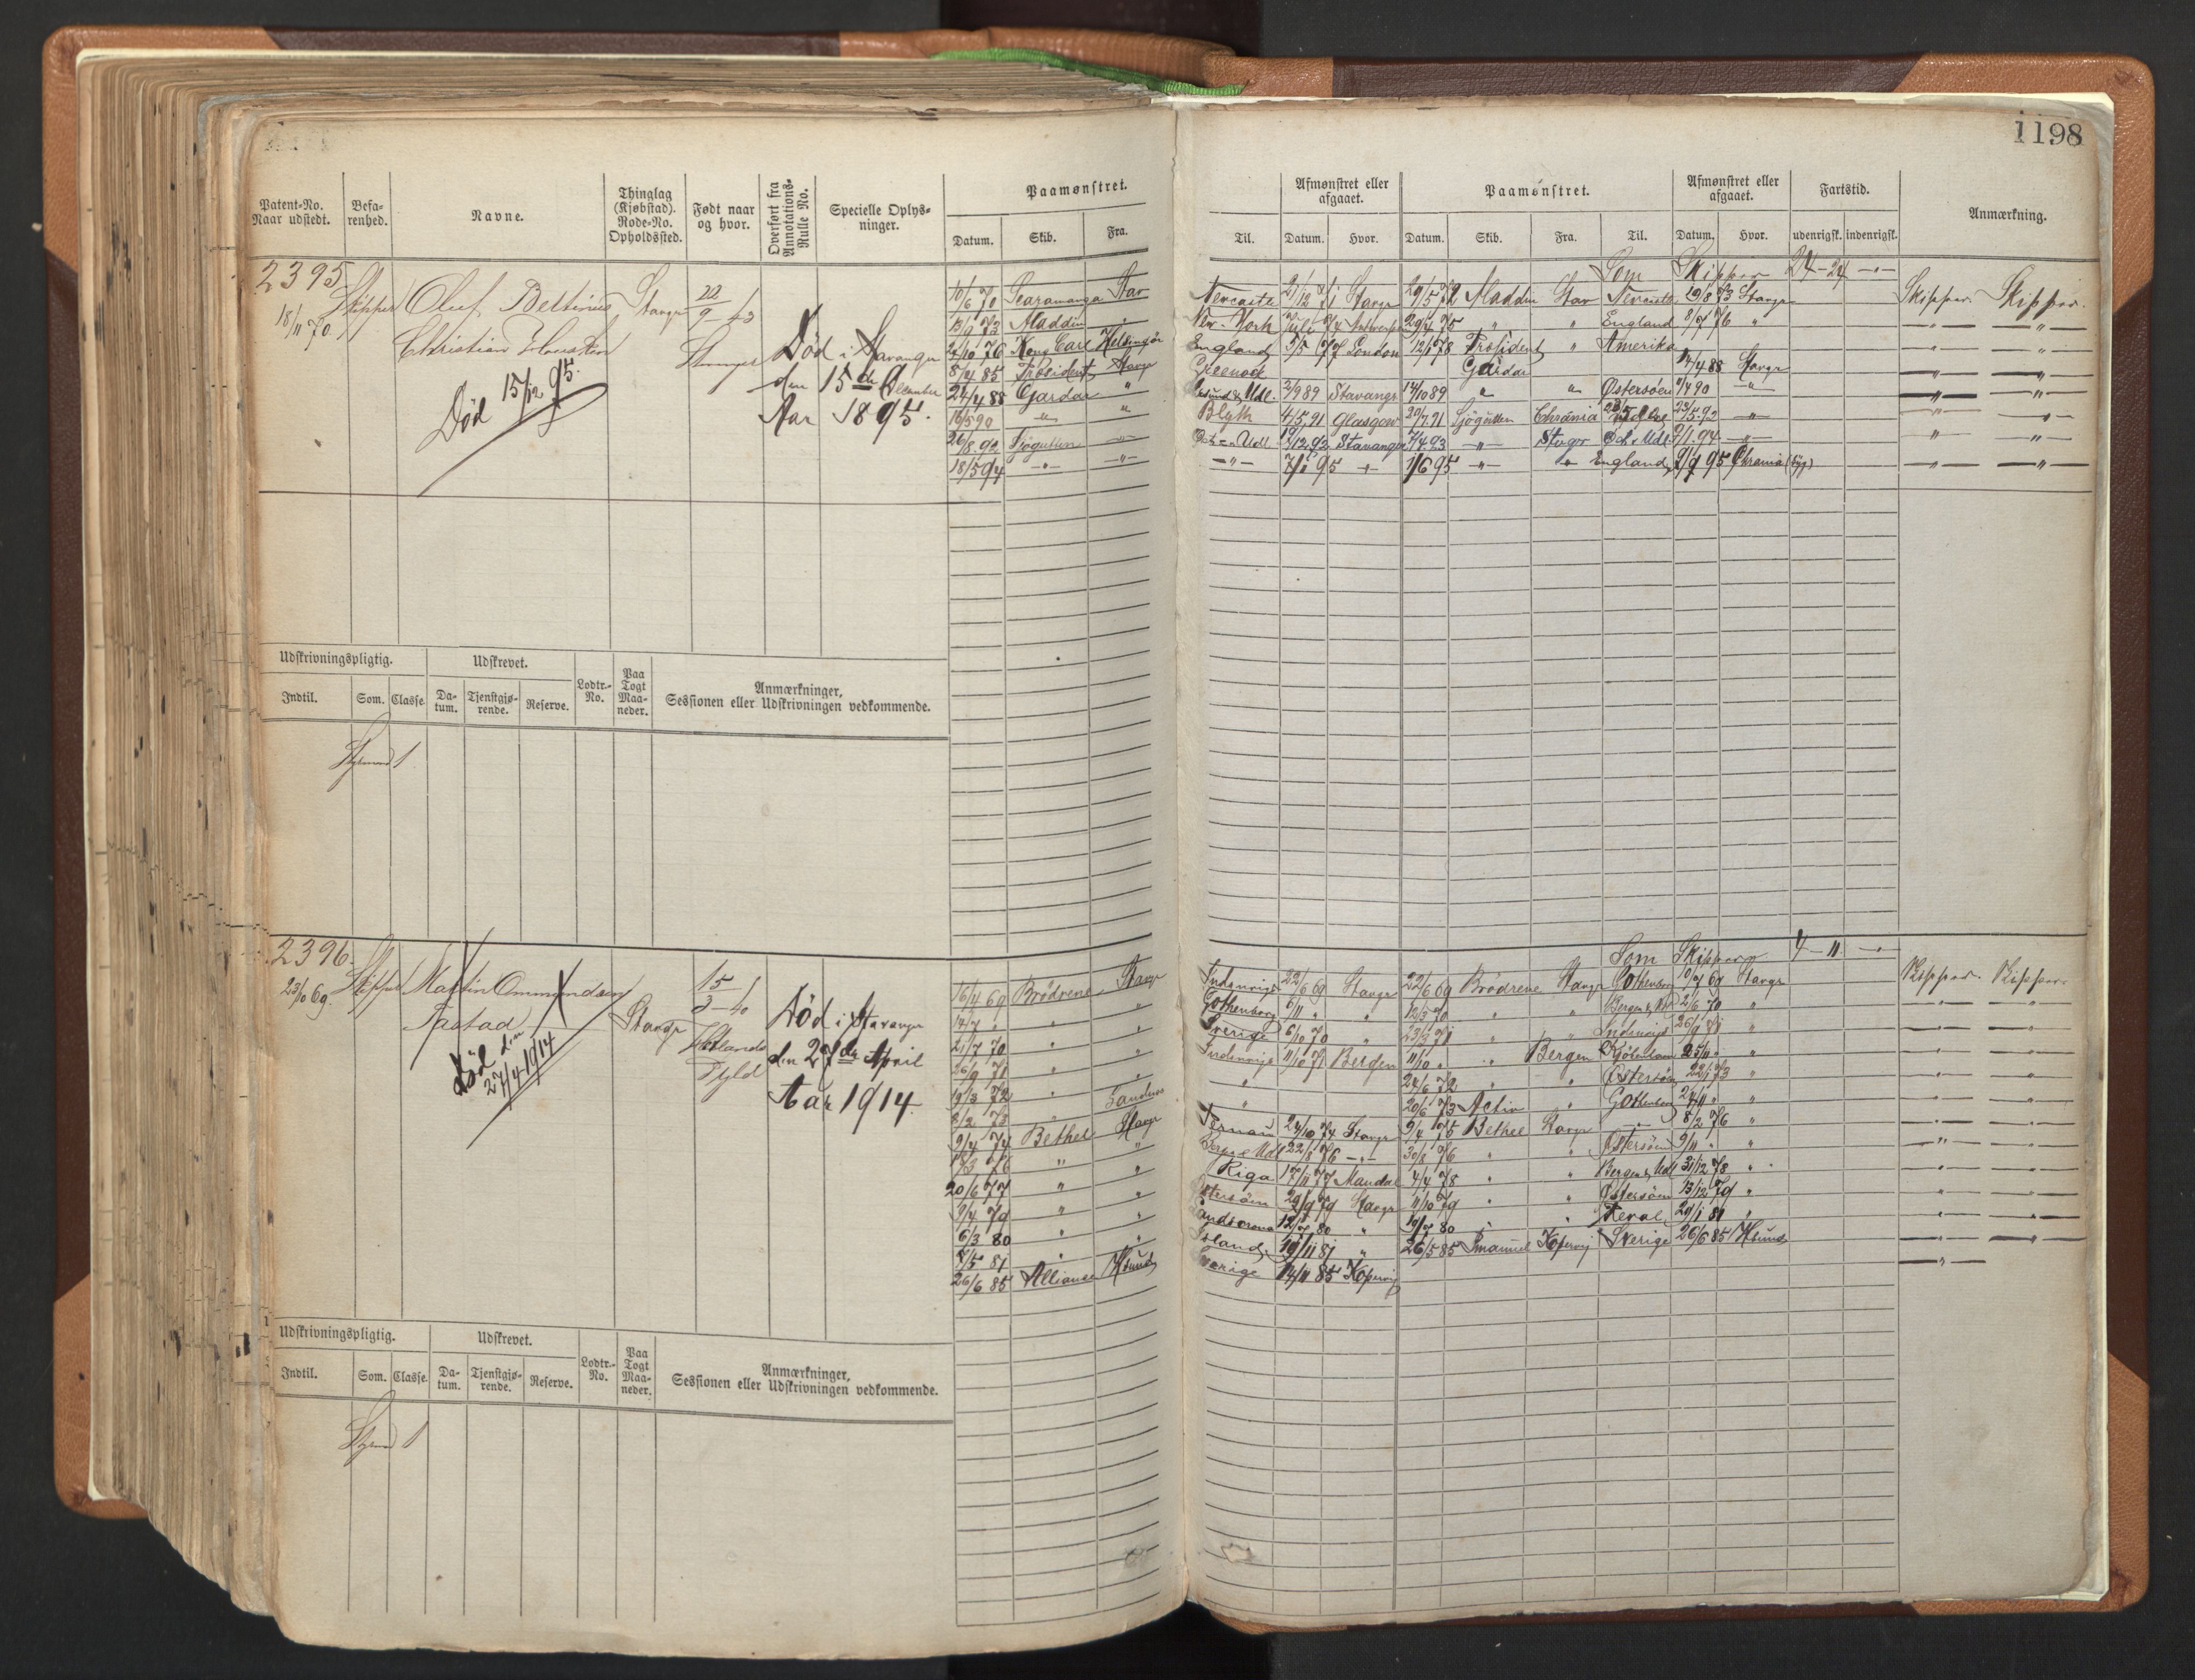 1198
Patent-No. Naar udstedt. Befarenhed. Navne. Thinglag (Kjøbstad). Rode-No. Opholdssted. Født naar og hvor. Overført fra Annotations-Rulle No. Specielle Oplysninger. Paamønstret. Datum. Skib. Fra.
Til. Afmønstret eller afgaaet. Datum. Hvor. Paamønstret. Datum. Skib. Fra. Til. Afmønstret eller afgaaet. Datum. Hvor. Fartstid. udenrigsk. indenrigsk. Anmærkning.
Som Skipper 24-24 -"-
2395 Skipper Oluf Stavgr 22/9 43
18/11 70 Christian
Død 15/12 95.
Død i Stavanger
den 15de December
Aar 1895.
10/6 70 Stav
Newcastle 21/12 71 Stavgr 29/5 72 Aladdin Stav Newcastle 19/8 73 Stavgr Skipper Skipper.
13/9 73 Aladdin "
New-York 74 Antwerpen 29/4 75 " " England 8/7 76 " -"- -"-
21/10 76 Kong Carl Helsingör
England 5/5 77 London 12/1 78 Präsident " Amerika -"- -"-
8/4 85 Präsident Stavgr
Greenock Gardar 14/4 88 Stavgr -"- -"-
24/4 88 Gardar "
2/9 89 Stavangr 14/10 89 " " Østersøen 90 -"- -"- -"-
16/5 90 " "
Blyth 4/5 91 Glasgow 20/7 91 Sjögutten Chrania 23/5 92 -"- -"- -"-
26/8 92 Sjøgutten -"-
19/12 92 Stavanger 7/4 93 -"- Stavgr 9/1 94 -"- -"- -"-
18/5 94 -"- -"-
-"- 7/1 95 -"- 1/6 95 -"- -"- England 9/7 95 Chrania (Syg) -"- -"-
Udskrivningspligtig. Indtil. Som. Classe. Udskrevet. Datum. Tjenstgjørende. Reserve. Lodtr.-No. Paa Togt Maaneder. Anmærkninger, Sessionen eller Udskrivningen vedkommende.
Styrmand 1
Som Skipper 4-11 -"-
2396. Skipper Martin Ommundsen Stavgr 15/3-40
23/10 69. Tastad
Død den 27/4 1914
Død i Stavanger
den 27de April
Aar 1914.
16/4 69 Brødrene Stavgr
Indenrigs 22/6 69 Stavgr 22/6 69 Brødrene Stavgr Gothenborg 10/7 69 Stavgr Skipper. Skipper.
14/7 " " "
Gothenborg 6/11 " " 12/3 70 " " 2/6 70 " -"- -"-
21/7 70 " "
Sverige 6/10 70 " 23/3 71 " " Indenrigs 26/9 71 " -"- -"-
26/9 71 " "
Indenrigs 11/10 71 Bergen 11/10 " " Bergen Kjøbenhavn 25/11 " " -"- -"-
19/3 72 "
" 24/6 72 " " Østersøen 22/1 73 " -"- -"-
8/2 73 " Sandnes
" 20/6 73 Activ " Gothenborg 24/11 " " -"- -"-
9/4 74 Bethel Stavgr
Pernau 24/10 74 Stavgr 9/4 75 Bethel Stavgr " 8/2 76 " -"- -"-
76 " "
22/8 76 -"- 30/8 76 " " Østersøen 9/11 " " -"- -"-
20/6 77 " "
Riga 17/11 77 Mandal 4/4 78 " " Bergen & Udl 31/12 78 " -"- -"-
9/4 79 " "
Østersøen 29/9 79 Stavgr 11/10 79 " " Østersøen 13/12 79 " -"- -"-
6/3 80 " "
Landscrona 12/7 80 " 19/7 80 " " Reval 29/1 81 " -"- -"-
7/5 81 "
Island 19/11 81 " 26/5 85 Imanuel Kopervig Sverige 26/6 85 Hsund -"- -"-
26/6 85 Alliance Hsund
Sverige 14/11 85 Kopervig -"-
Udskrivningspligtig. Indtil. Som. Classe. Udskrevet. Datum. Tjenstgjørende. Reserve. Lodtr.-No. Paa Togt Maaneder. Anmærkninger, Sessionen eller Udskrivningen vedkommende.
Styrmd 1